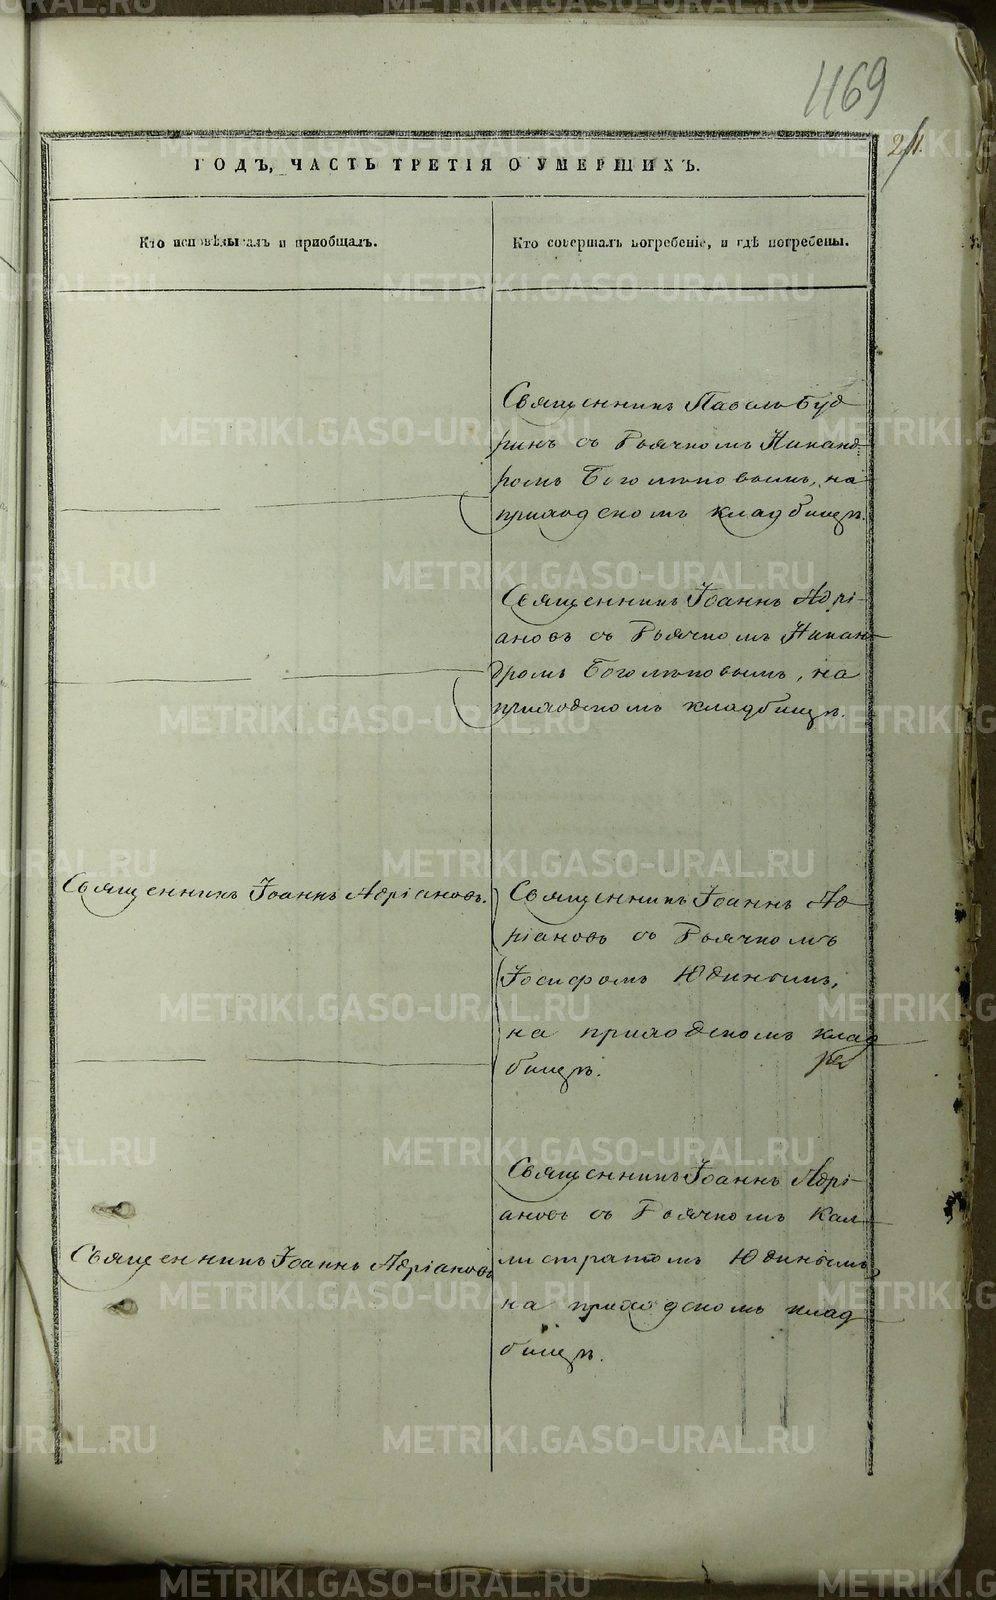 1169
21.
ГОДЪ, ЧАСТЬ ТРЕТІЯ О УМЕРШИХЪ.
Кто исповѣдывалъ и приобщалъ.
Кто совершалъ погребеніе, и гдѣ погребены.
Священникъ Павелъ Буд
ринъ съ ДьячкомъНиканд
ромъ Боголѣповымъ, на
приходскомъ кладбищѣ.
Священникъ Іоаннъ Адрі-
ановъ съ Дьячкомъ Никан
дромъ Боголѣповымъ, на
приходскомъ кладбищѣ.
Священникъ Іоаннъ Адріановъ.
Священникъ Іоаннъ Ад
ріановъ съ Дьячкомъ
Іосифомъ Юдинымъ,
на приходскомъ клад
бищѣ.
Священникъ Іоаннъ Адріановъ
Священникъ Іоаннъ Адрі-
ановъ съ Дьячкомъ Кал
листратомъ Юдинымъ,
на приходскомъ клад
бищѣ.
METRIKI.GASO-URAL.RU